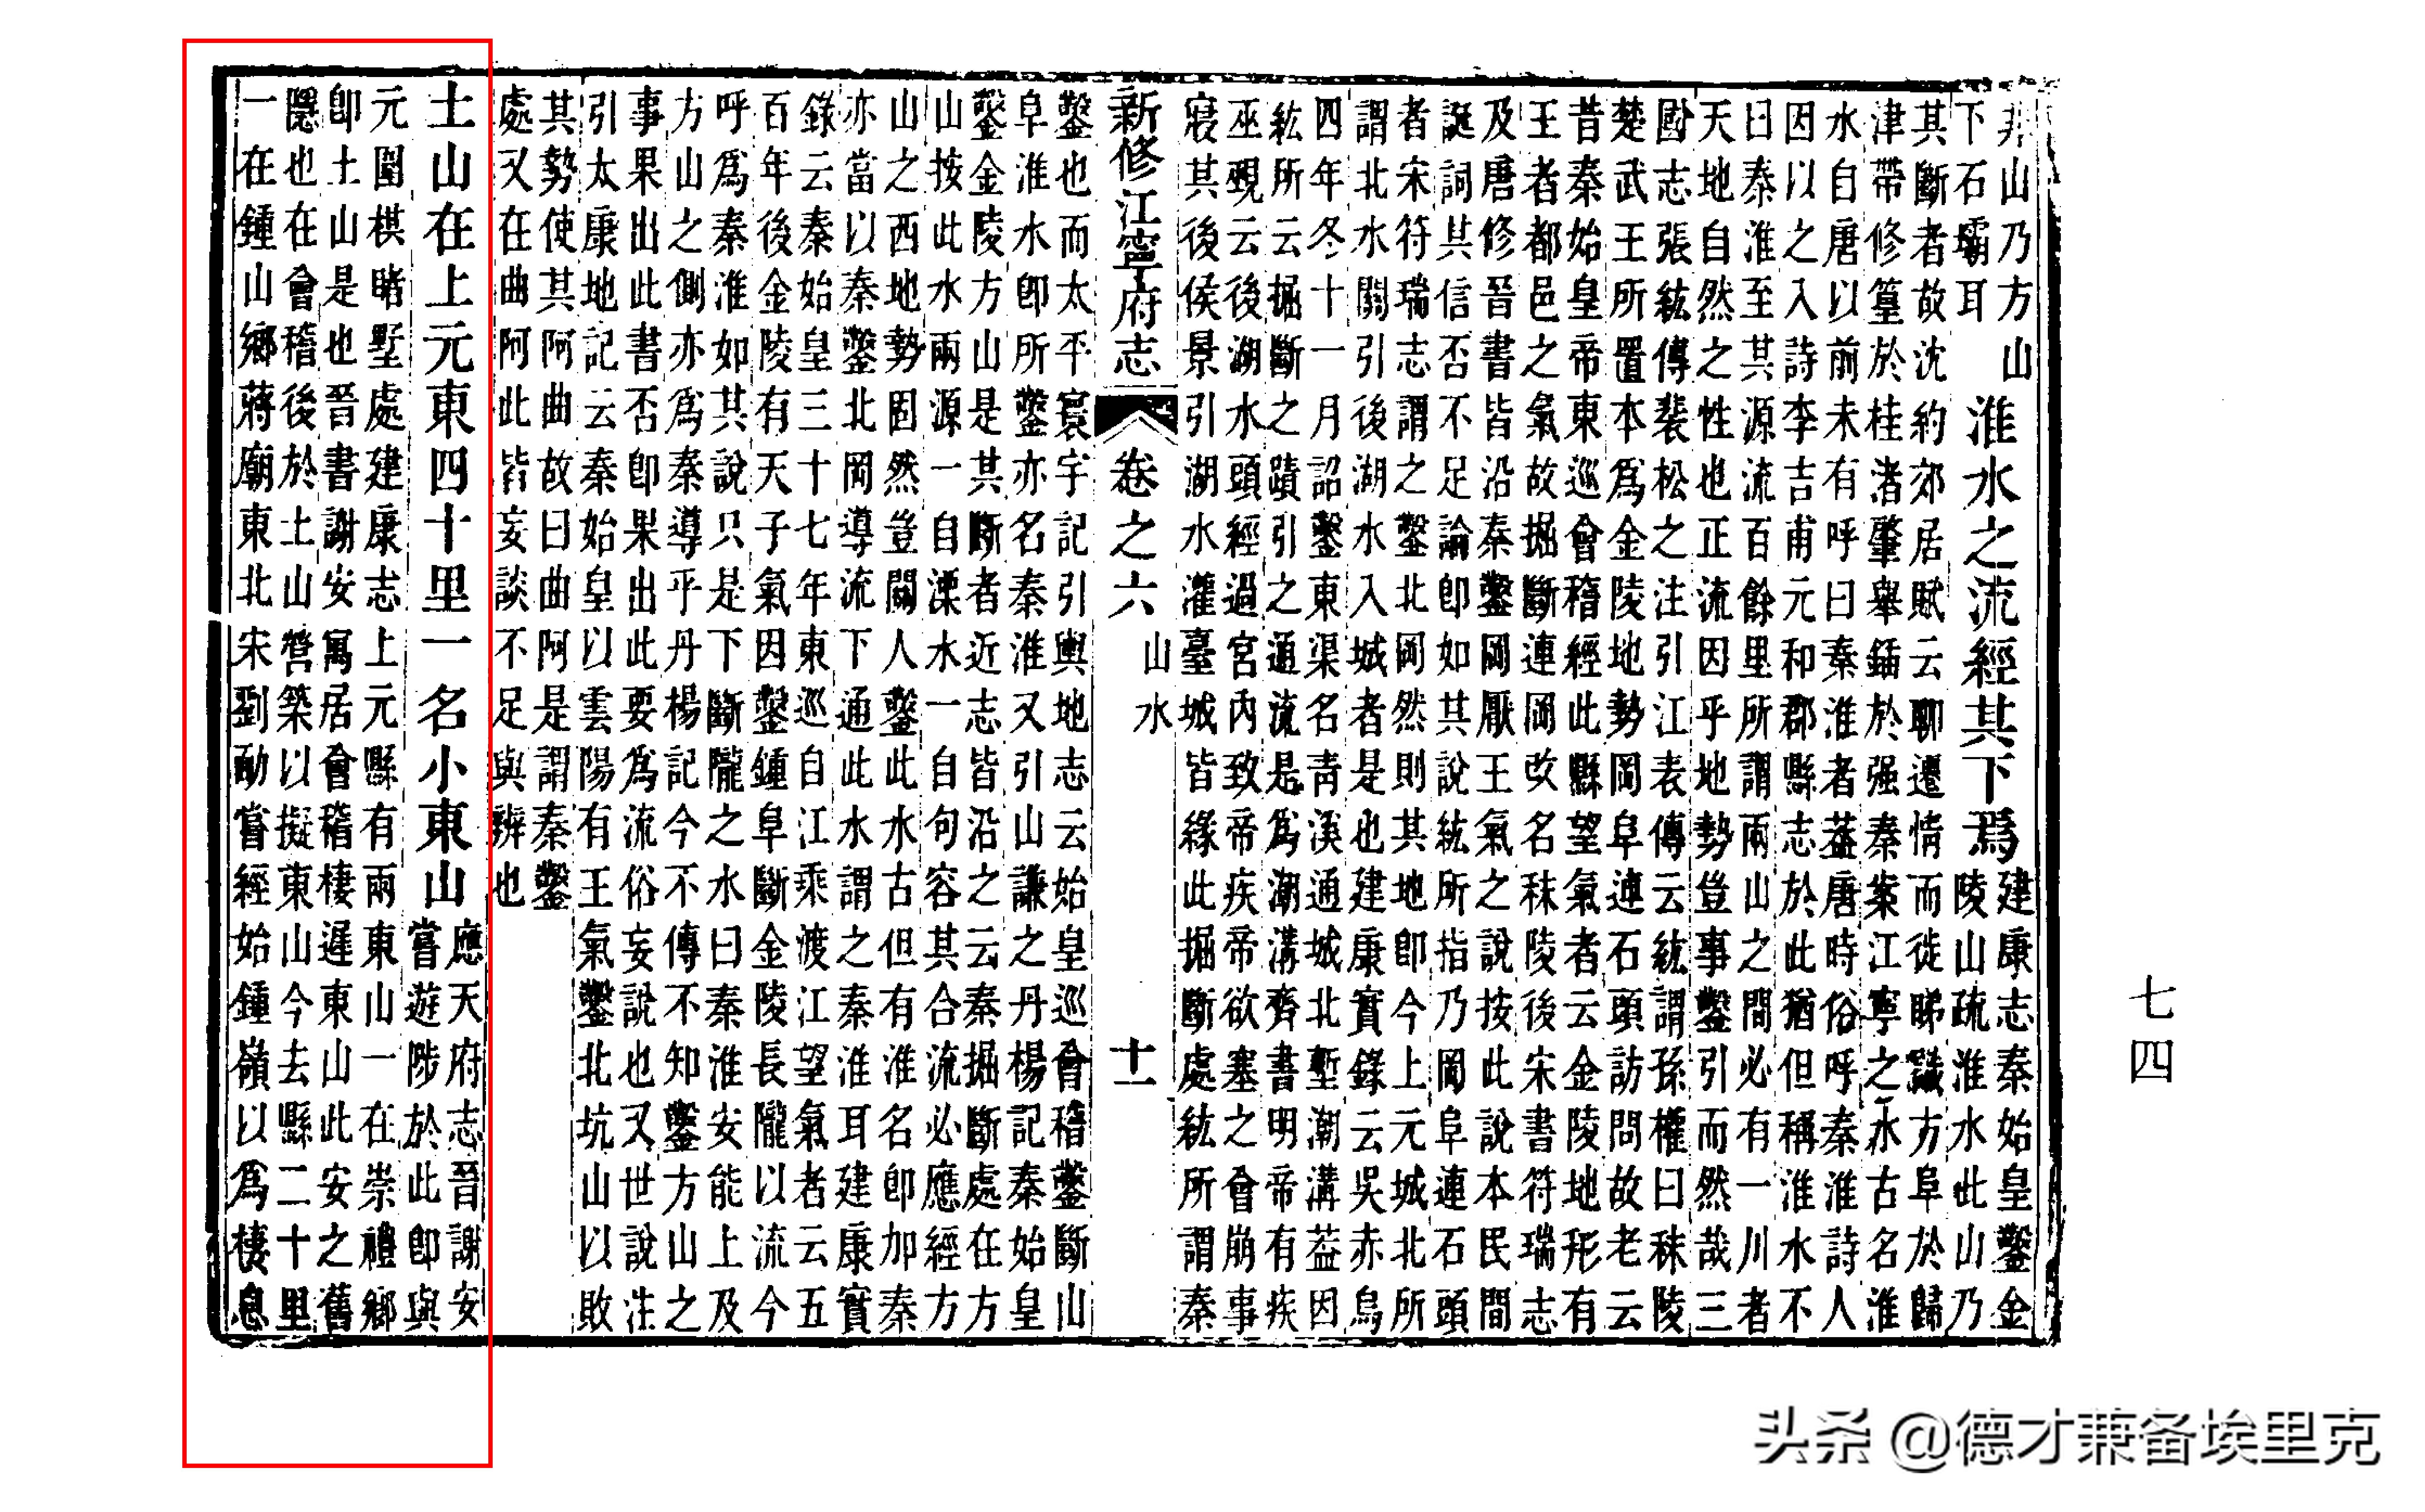 非山乃方山
下石壩耳
淮水之流經其下爲
建康志秦始皇鑿金
陵山疏淮水此山乃
其斷者故沈約郊居賦云聊遷情而徙睇識方阜於歸
津帶修篁於桂渚肇舉鍤於强秦案江寧之水古名淮
水自唐以前未有呼曰秦淮者葢唐時俗呼秦淮詩人
因以之入詩李吉甫元和郡縣志於此猶但稱淮水不
曰秦淮至其源流百餘里所謂兩山之間必有一川者
天地自然之性也正流因乎地勢豈事鑿引而然哉三
國志張紘傳裴松之注引江表傳云紘謂孫權曰秣陵
楚武王所置本爲金陵地勢岡阜連石頭訪問故老云
昔秦始皇帝東巡會稽經此縣望氣者云金陵地形有
王者都邑之氣故掘斷連岡改名秣陵後宋書符瑞志
及唐修晉書皆沿秦鑿岡厭王氣之說按此說本民間
誕詞其信否不足論卽如其說紘所指乃岡阜連石頭
者宋符瑞志謂之鑿北岡然則其地卽今上元城北所
謂北水關引後湖水入城者是也建康實錄云吳赤烏
四年冬十一月詔鑿東渠名青溪通城北塹潮溝葢因
紘所云掘斷之蹟引之通流是爲潮溝齊書明帝有疾
巫覡云後湖水頭經過宮內致帝疾帝欲塞之會崩事
寢其後侯景引湖水灌臺城皆緣此掘斷處紘所謂秦
新修江寧府志 卷之六 山水 十一
鑿也而太平寰宇記引輿地志云始皇巡會稽鑿斷山
阜淮水卽所鑿亦名秦淮又引山謙之丹楊記秦始皇
鑿金陵方山是其斷者近志皆沿之云秦掘斷處在方
山按此水兩源一自溧水一自句容其合流必應經方
山之西地勢固然豈關人鑿此水古但有淮名卽加秦
亦當以秦鑿北岡導流下通此水謂之秦淮耳建康實
錄云秦始皇三十七年東巡自江乘渡江望氣者云五
百年後金陵有天子氣因鑿鍾阜斷金陵長隴以流今
呼爲秦淮如其說只是下斷隴之水曰秦淮安能上及
方山之側亦爲秦導乎丹楊記今不傳不知鑿方山之
事果出此書否卽果出此要爲流俗妄說也又世說注
引太康地記云秦始皇以雲陽有王氣鑿北坑山以敗
其勢使其阿曲故曰曲阿是謂秦鑿
處又在曲阿此皆妄談不足與辨也
土山在上元東四十里一名小東山
應天府志晉謝安
嘗遊陟於此卽與
元圍棋賭墅處建康志上元縣有兩東山一在崇禮鄉
卽土山是也晉書謝安寓居會稽棲遲東山此安之舊
隱也在會稽後於土山營築以擬東山今去縣二十里
一在鍾山鄉蔣廟東北宋劉勔嘗經始鍾嶺以爲棲息
七四
头条 @德才兼备埃里克